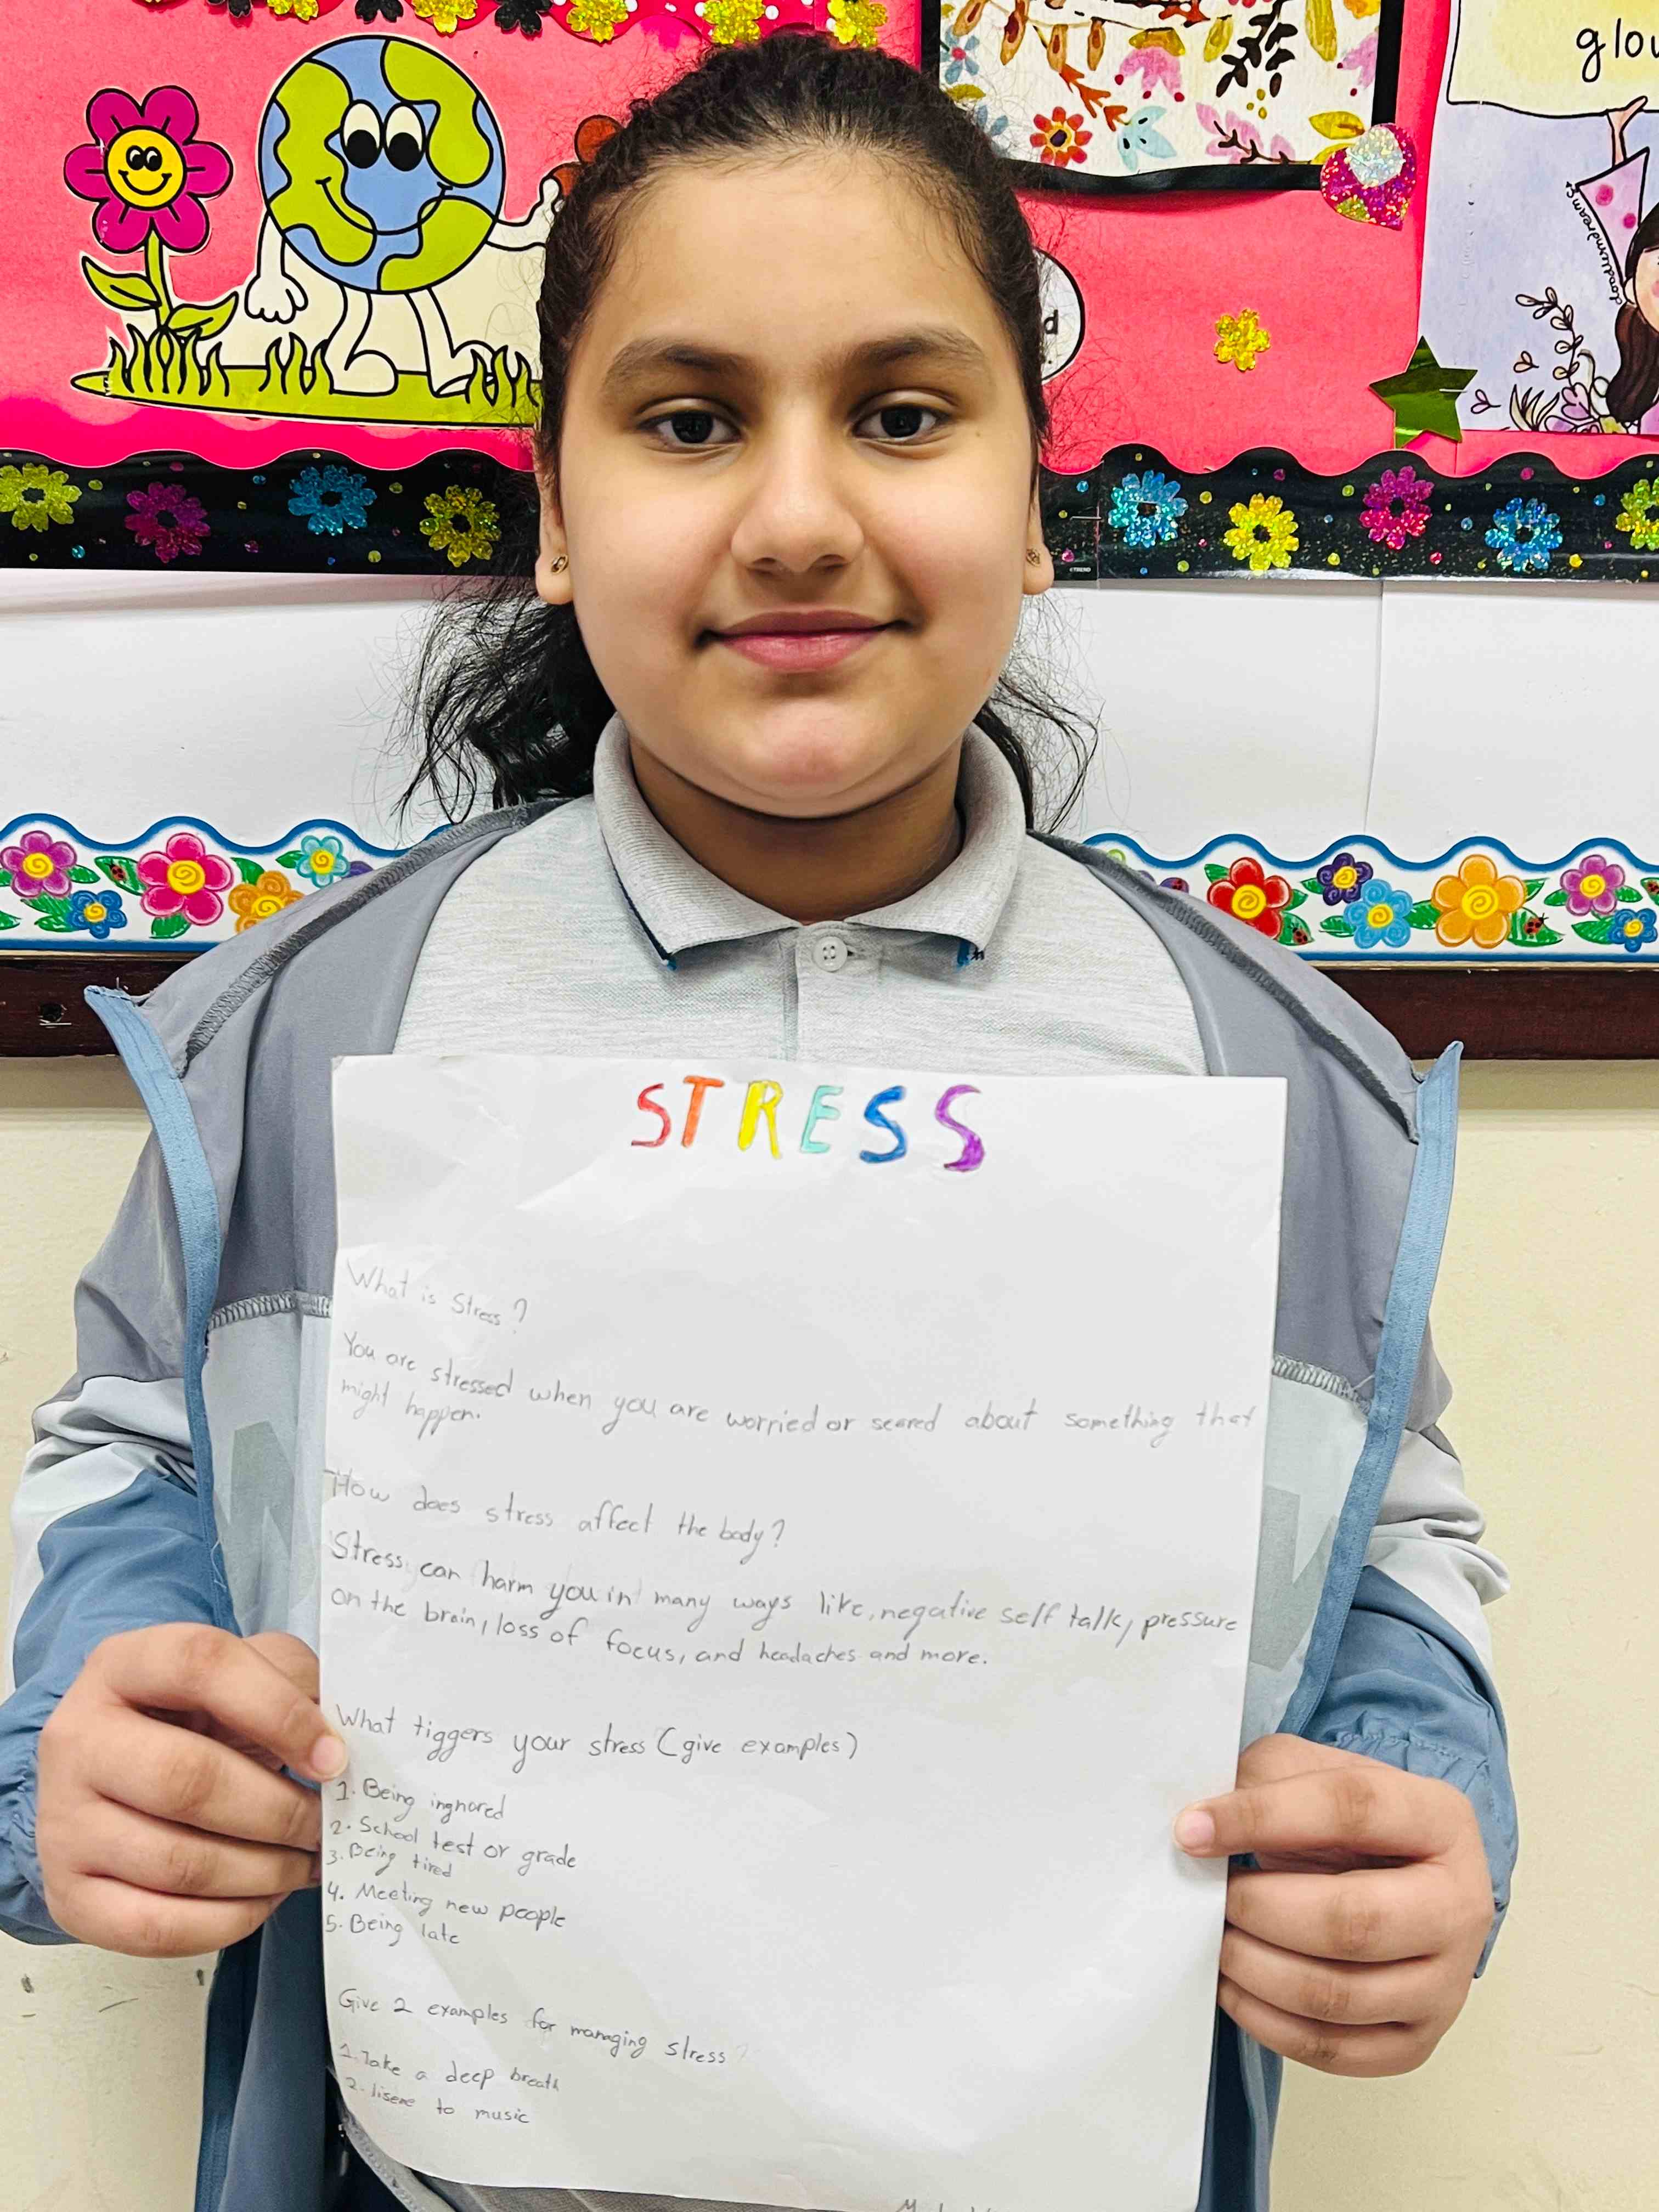 glou
d
doodlemdreams
TREND
STRESS
What is Stress?
You are stressed when you are worried or scared about something that
might happen.
How does stress affect the body?
Stress can harm you in many ways like, negative self talk, pressure
on the brain, loss of focus, and headaches and more.
What tiggers your stress (give examples)
1. Being ingnored
2. School test or grade
3. Being tired
4. Meeting new people
5. Being late
Give 2 examples for managing stress?
1. Take a deep breath
2. lisene to music